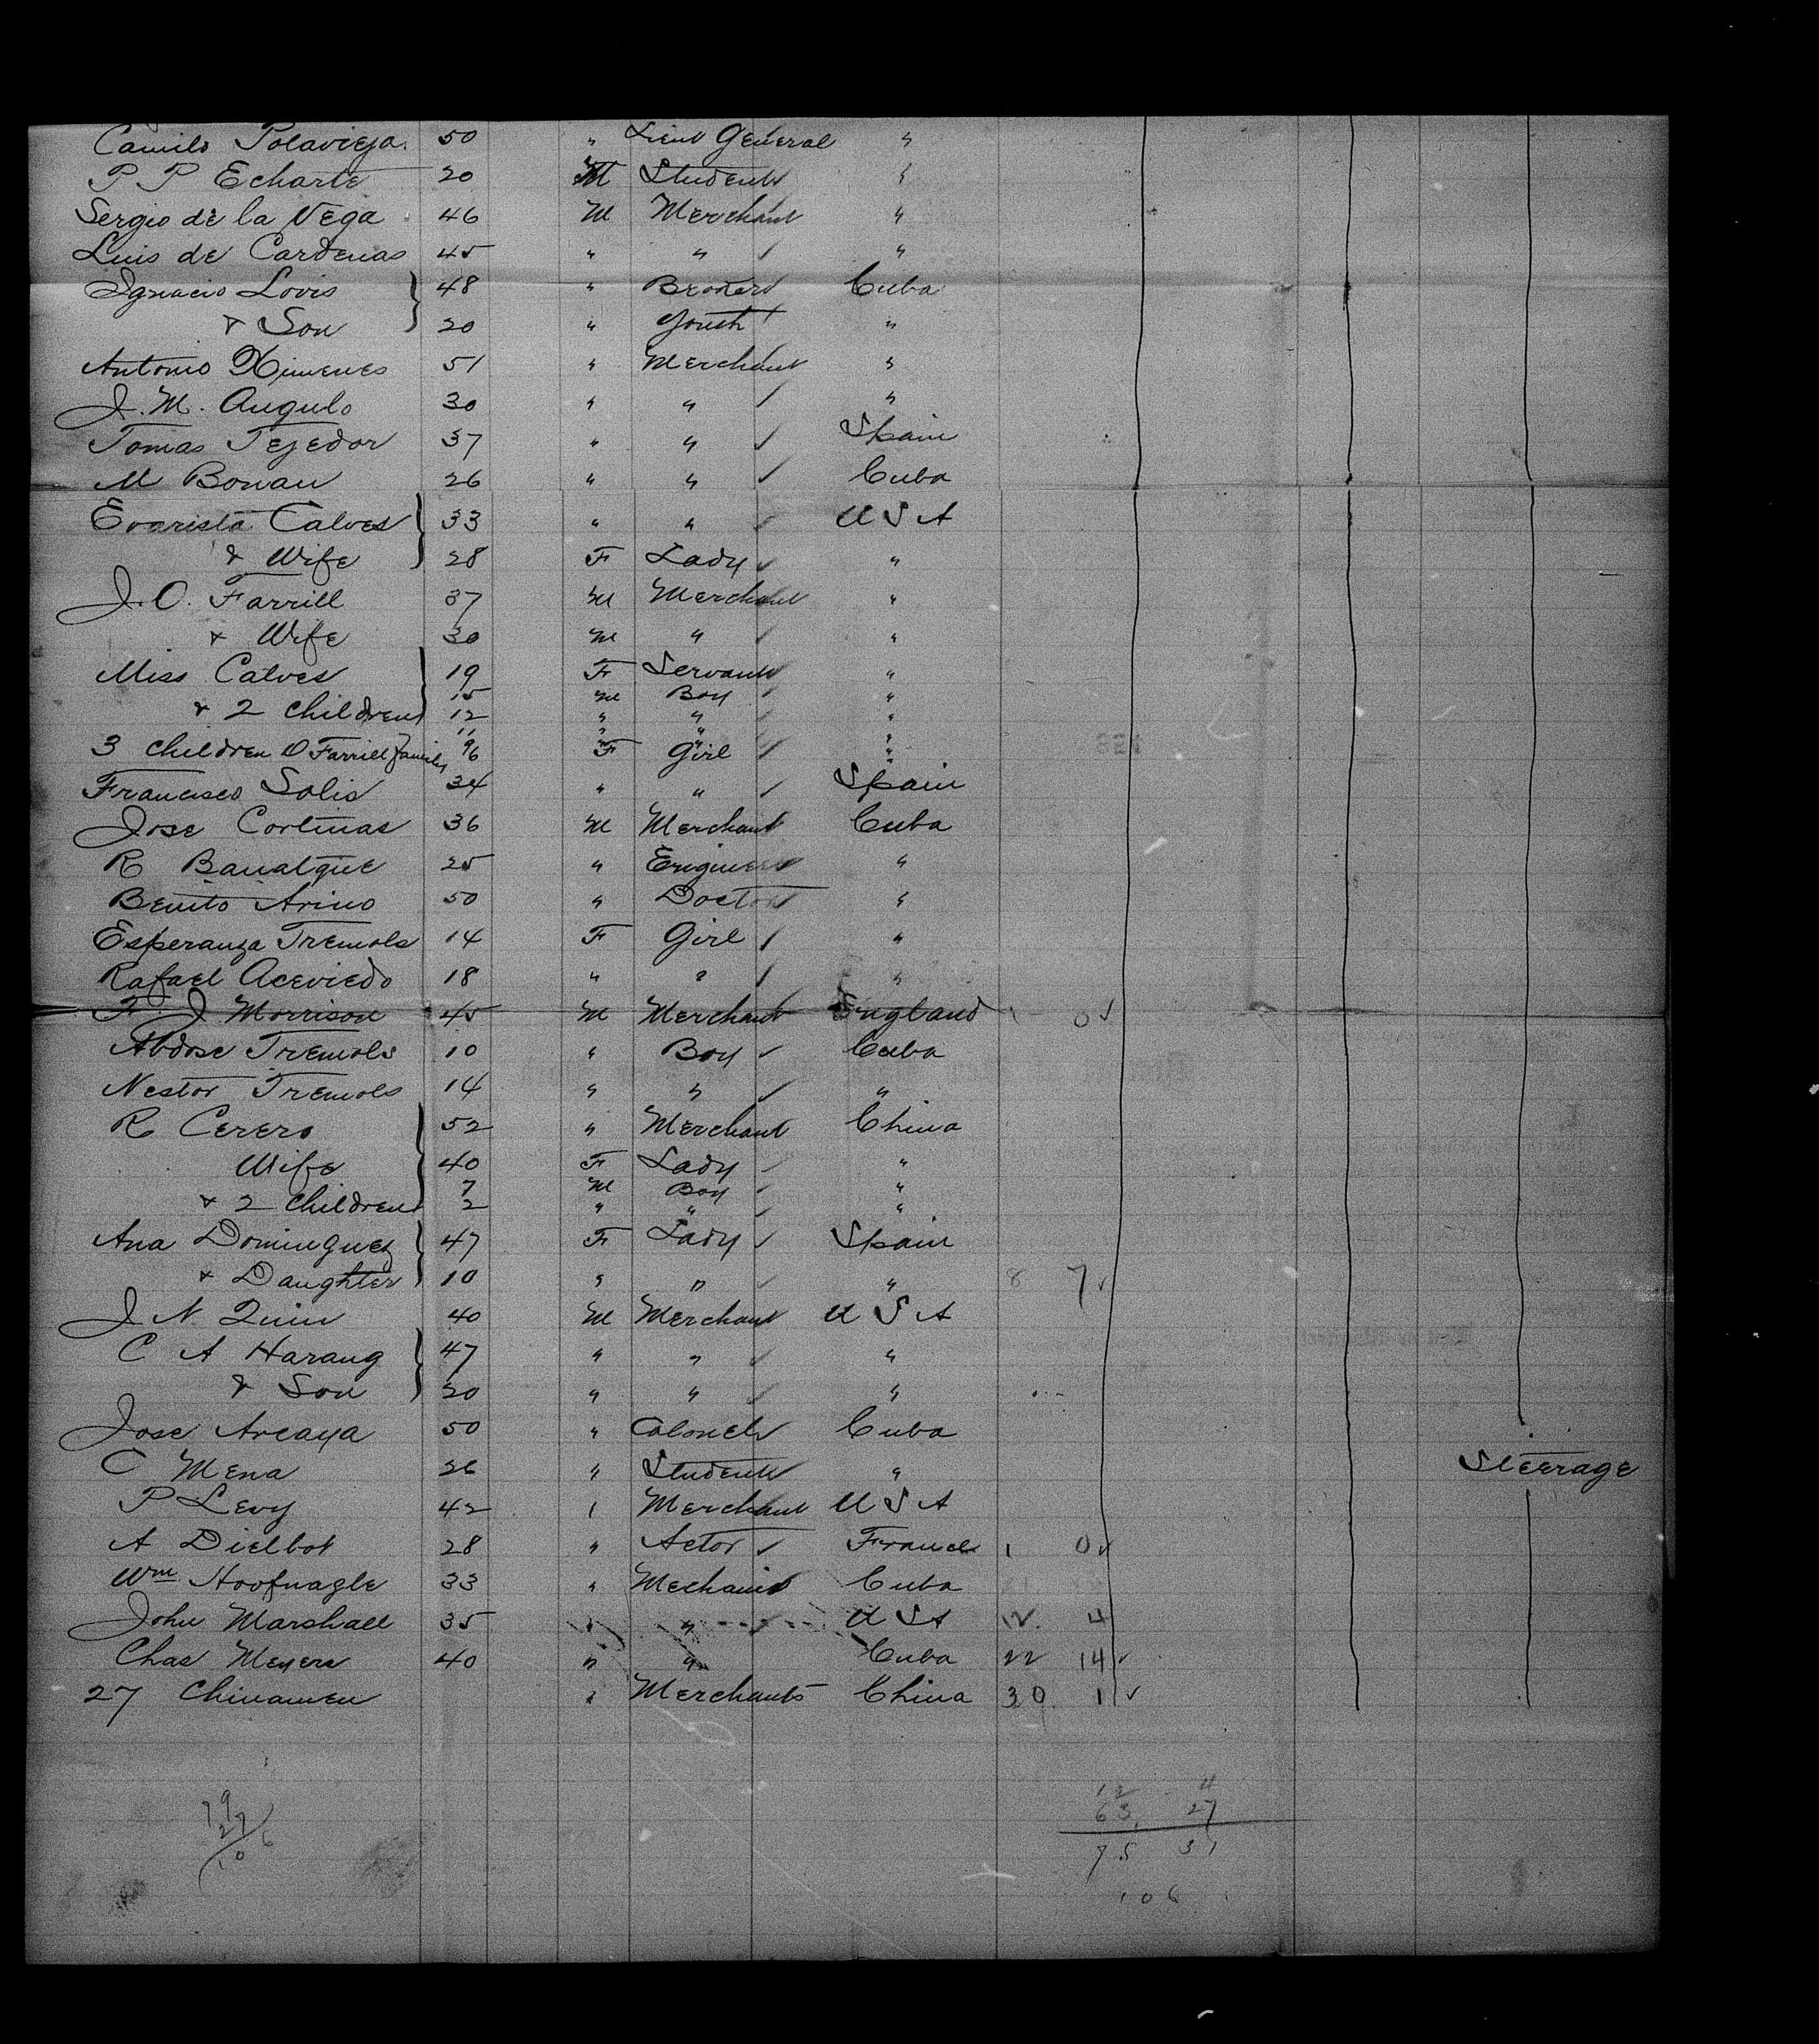 Camilo Polavieja. 50 " Lieut General "
P P Echarte 20 M Student "
Sergio de la Vega 46 M Merchant "
Luis de Cardenas 45 " " "
Ignacio Lovis 48 " Broker Cuba
& Son 20 " Youth "
Antonio Ximenes 51 " Merchant "
J. M. Angulo 30 " " "
Tomas Tejedor 37 " " Spain
M Bonan 26 " " Cuba
Evarista Calves 33 " " U S A
& Wife 28 F Lady "
J. O. Farrill 37 M Merchant "
& Wife 30 M " "
Miss Calves 19 F Servant "
15 M Boy "
& 2 Children 12 " " "
11 " " "
3 Children O Farrill family 9 6 F Girl "
Francisco Solis 34 " " Spain
Jose Cortinas 36 M Merchant Cuba
R Banatque 25 " Engineer "
Benito Arino 50 " Doctor "
Esperanza Tremols 14 F Girl "
Rafael Aceviedo 18 " " "
F. J Morrison 45 M Merchant England 1 0
Abdose Tremols 10 " Boy Cuba
Nestor Tremols 14 " " "
R Cerero 52 " Merchant China
Wife 40 F Lady "
7 M Boy "
& 2 Children 2 " " "
Ana Dominguez 47 F Lady Spain
& Daughter 10 " " " 8 7
J N Quin 40 M Merchant U S A
C A Harang 47 " " "
& Son 20 " " "
Jose Arcaya 50 " Colonel Cuba
C Mena 26 " Student " Steerage
P Levy 42 " Merchant U S A
A Dielbot 28 " Actor France 1 0
Wm Hoofnagle 33 " Mechanic Cuba
John Marshall 35 " " U S A 12 4
Chas Meyers 40 " " Cuba 22 14
27 Chinamen " Merchants China 30 1
79
27
106
12 4
63 27
75 31
106